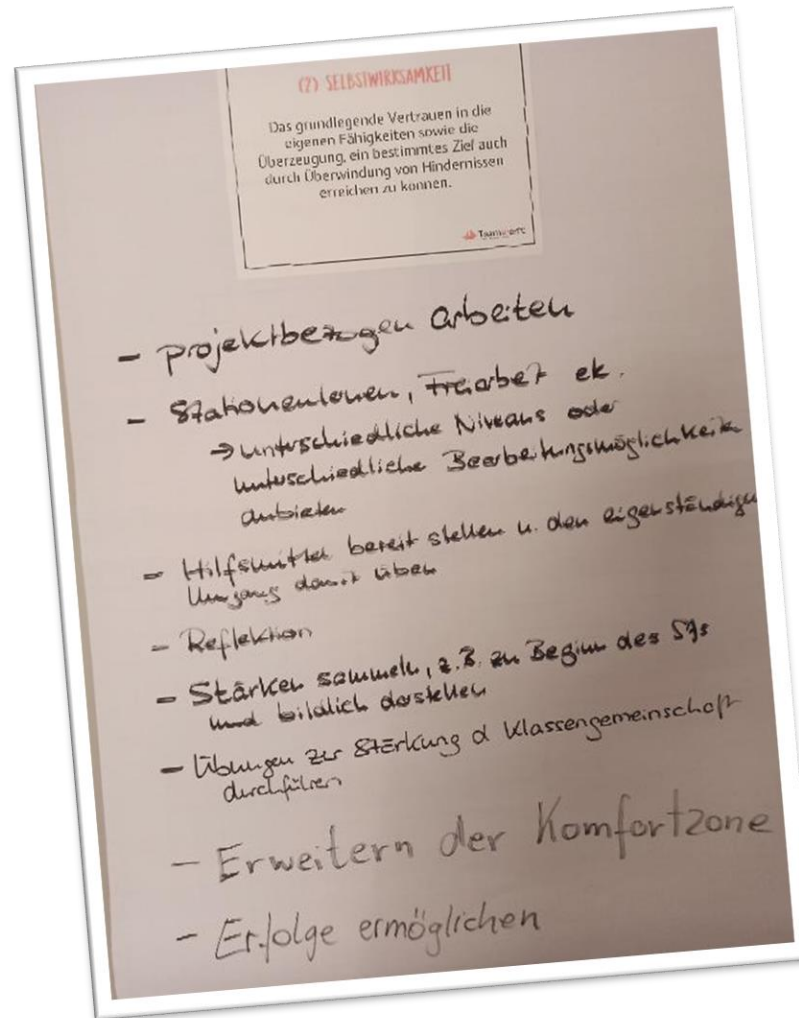 (2) SELBSTWIRKSAMKEIT
Das grundlegende Vertrauen in die
eigenen Fähigkeiten sowie die
Überzeugung, ein bestimmtes Ziel auch
durch Überwindung von Hindernissen
erreichen zu können.
- projektbezogen arbeiten
- Stationenlernen, Freiarbeit etc.
→ unterschiedliche Niveaus oder
unterschiedliche Bearbeitungsmöglichkeiten
anbieten
- Hilfsmittel bereit stellen u. den eigenständigen
Umgang damit üben
- Reflektion
- Stärken sammeln, z.B. zu Beginn des SJs
und bildlich darstellen
- Übungen zur Stärkung d Klassengemeinschaft
durchführen
- Erweitern der Komfortzone
- Erfolge ermöglichen